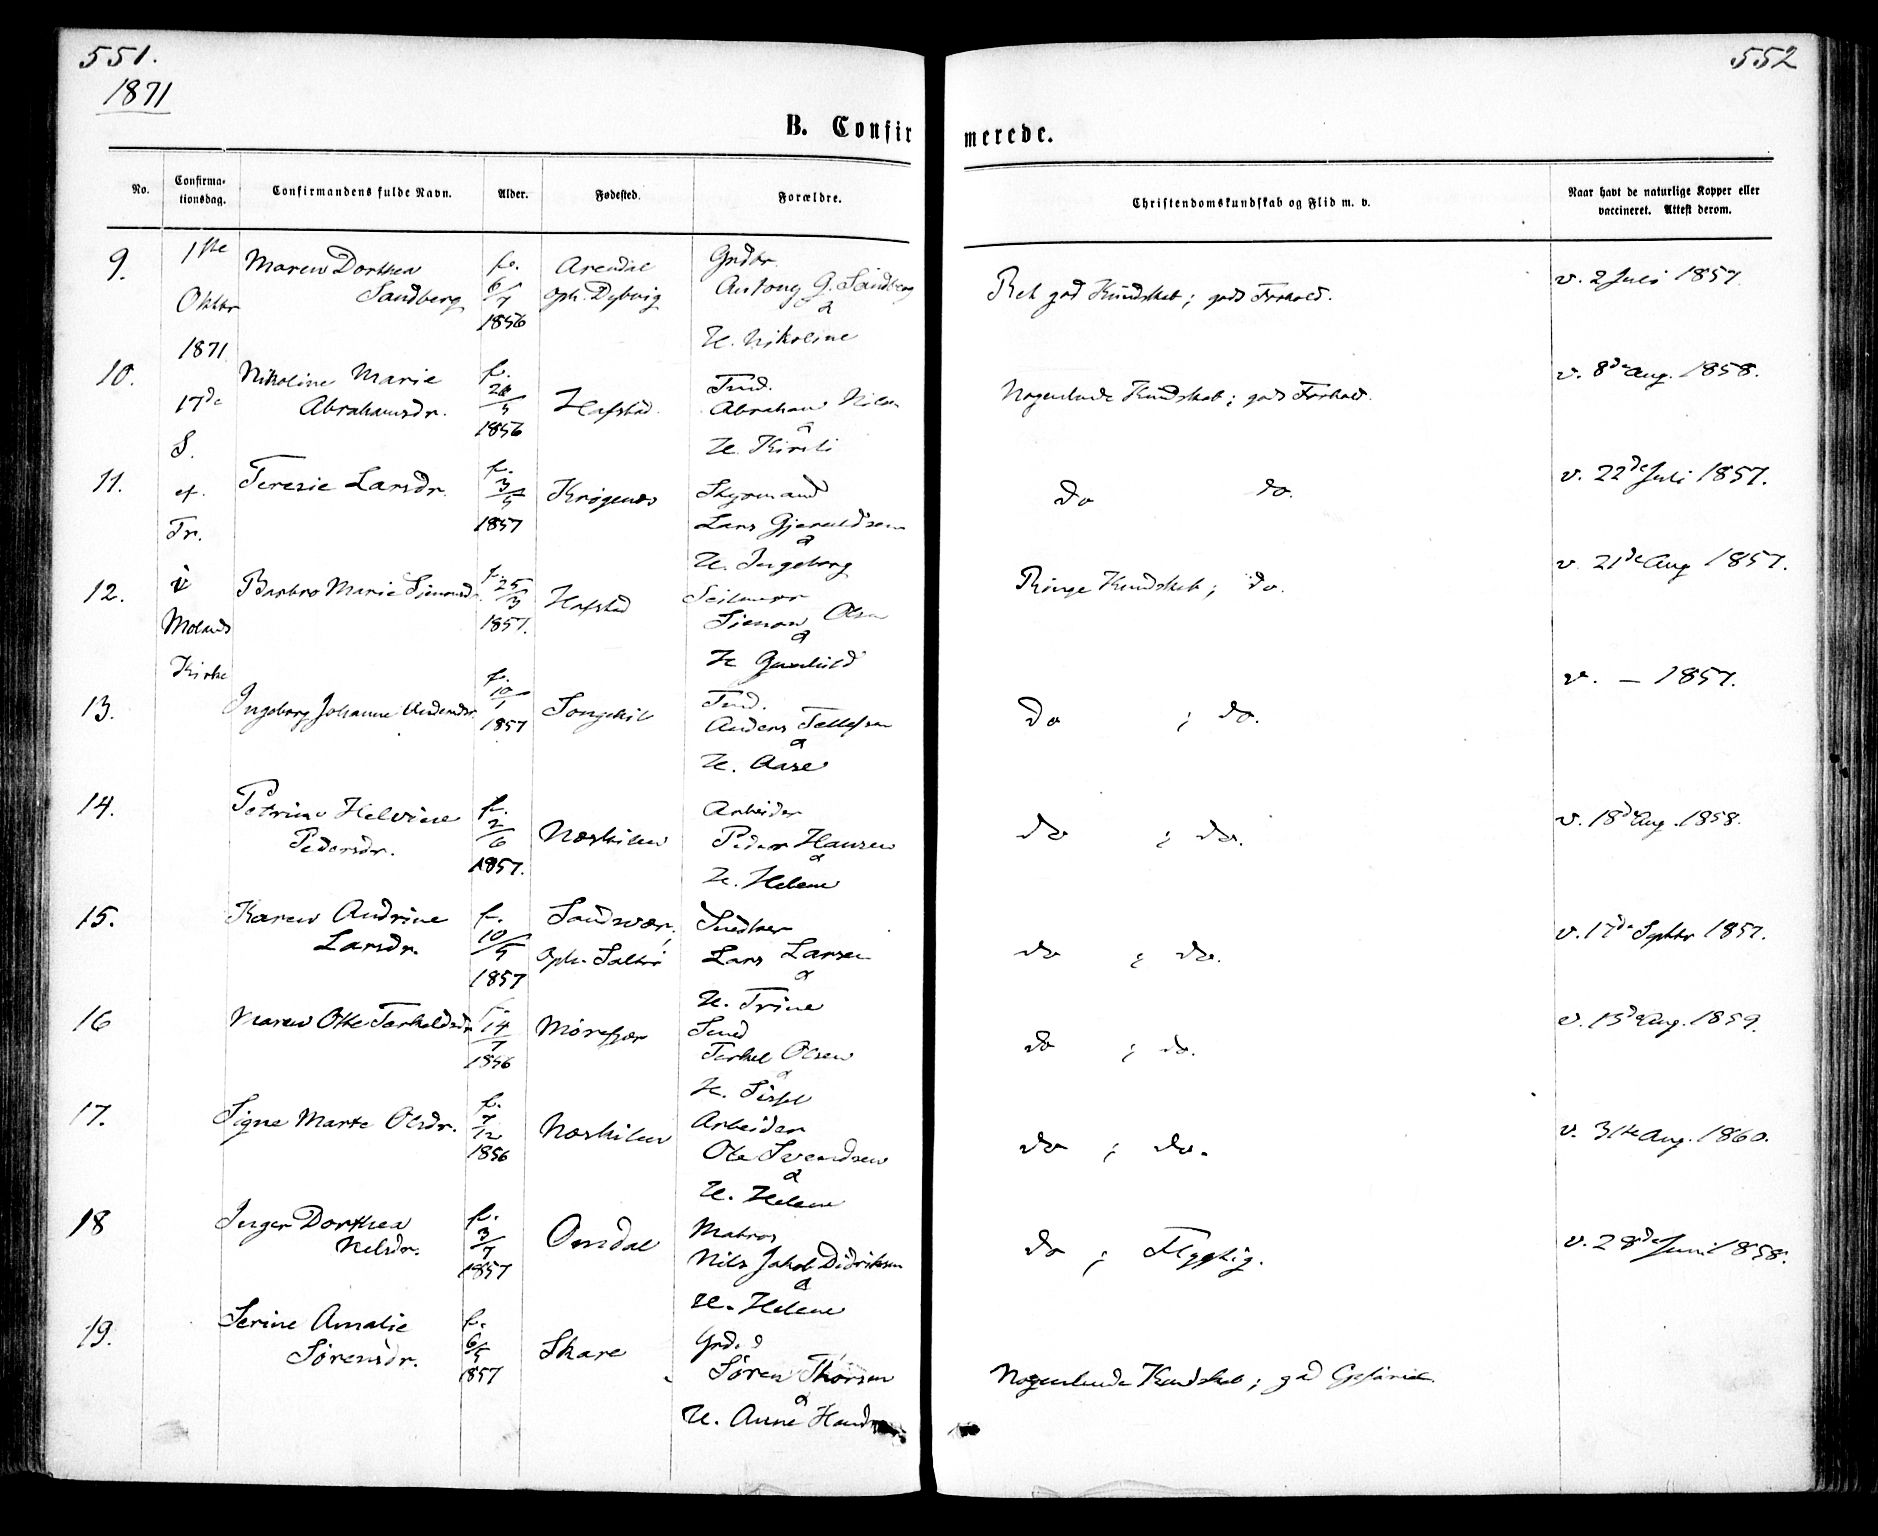 551.
1871
552
B. Confirmerede.
No.
Confirmationsdag.
Confirmandens fulde Navn.
Alder.
Fødested.
Forældre.
Christendomskundskab og Flid m. v.
Naar havt de naturlige Kopper eller vaccineret. Attest derom.
1ste
Oktbr
1871
17de
S.
ef.
Tr.
i
Molands
Kirke
9.
Maren Dorthea
Sandberg
f.
6/7
1856
Arendal
Oph. Dybvig
Grdbr.
Antony G. Sandberg
&
H. Nikoline
Ret god Kundskab; godt Forhold.
v. 2 Juli 1857.
10.
Nikoline Marie
Abrahamsdr.
f.
1856
Hafstad
Tmd.
Abraham Nilsen
&
H. Kirsti
Nogenlunde Kundskab; godt Forhold.
v. 8de Aug. 1858.
11.
Teresie Larsdr.
f.
3/5
1857
Krøgenes
Styrmand
Lars Gjeruldsen
&
H. Ingeborg
do do.
v. 22de Juli 1857.
12.
Barbro Marie Simonsd.
f.
25/3
1857.
Hafstad
Simon Olsen
&
H Gunhild
Ringe Kundskab; do.
v. 21de Aug 1857.
13.
Ingeborg Johanne Andersdr.
f.
10/1
1857
Songekil
Tmd.
Anders Tellefsen
&
H. Aase
do ; do.
v. — 1857.
14.
Petrine Helvine
Pedersdr.
f.
2/6
1857.
Neskilen
Arbeider
Peder Hansen
&
H. Helene
do ; do.
v. 18de Aug. 1858.
15.
Karen Andrine
Larsdr.
f.
10/5
1857
Sandsvær,
Oph. Salterø
Snedker
Lars Larsen
&
H. Trine
do ; do.
v. 17de Septbr 1857.
16
Maren Otte Terkeldsdr
f.
14/7
1856
Mørefjær
Smed
Terkel Olsen
&
H. Sissel
do ; do.
v. 13de Aug. 1859.
17.
Signe Marte Olsdr.
f.
7/12
1856
Neskilen
Arbeider
Ole Svendsen
&
H. Helene
do ; do.
v. 31te Aug. 1860.
18
Inger Dorthea
Nilsdr.
f.
3/7
1857
Omdal
Matros
Nils Jakob Didriksen
&
H. Helene
do ; Flygtig.
v. 28de Juni 1858.
19.
Serine Amalie
Sørensdr.
f.
6/5
1857
Skare
Grd.
Søren Thorsen
&
H. Anne
Nogenlunde Kundskab; god